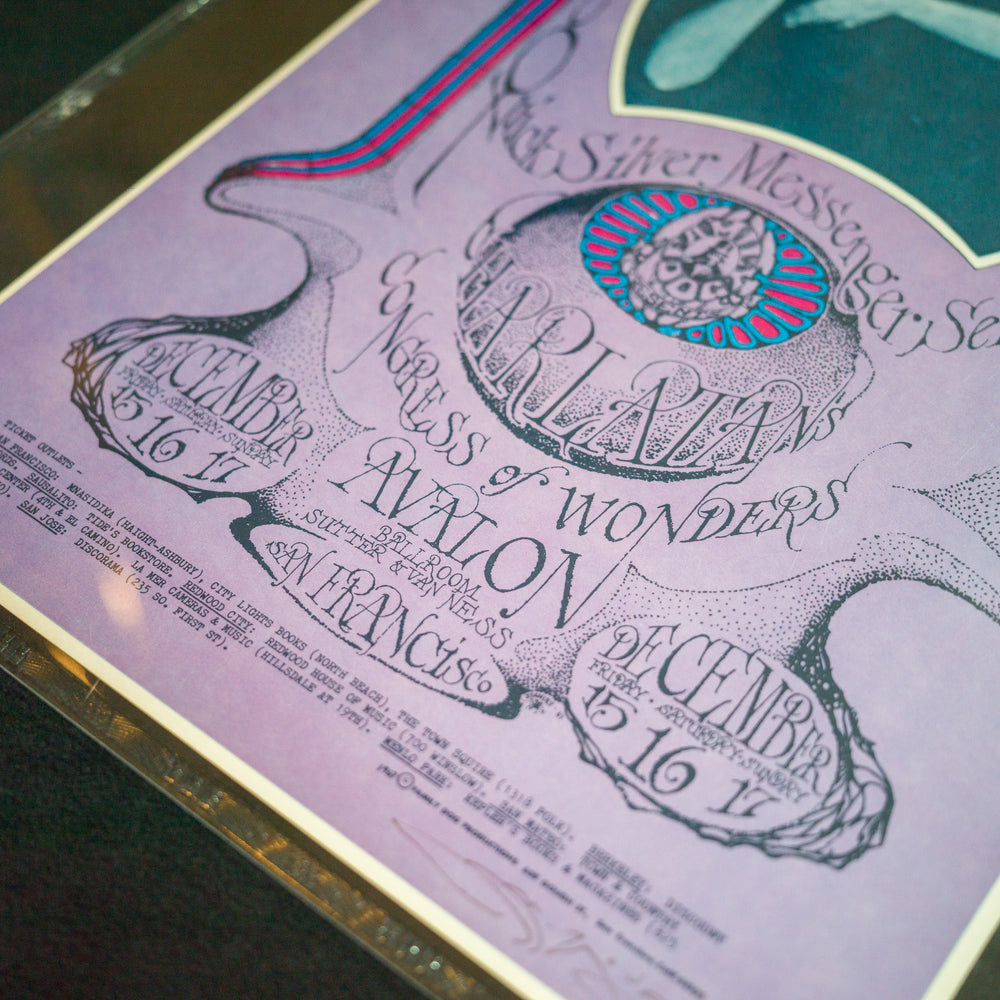 Quick Silver Messenger Ser
FAMILY
DOG
CHARLATANS
CONGRESS of WONDERS
AVALON
BALLROOM
SUTTER & VAN NESS
SAN FRANCISCO
DECEMBER
FRIDAY · SATURDAY · SUNDAY
15 16 17
DECEMBER
FRIDAY · SATURDAY · SUNDAY
15 16 17
TICKET OUTLETS -
SAN FRANCISCO: MNASIDIKA (HAIGHT-ASHBURY), CITY LIGHTS BOOKS (NORTH BEACH), THE TOWN SQUIRE (1318 POLK). BERKELEY: DISCOUNT
SAUSALITO: TIDE'S BOOKSTORE. REDWOOD CITY: REDWOOD HOUSE OF MUSIC (700 WINSLOW). SAN MATEO: TOWN & COUNTRY
CENTER (4TH & EL CAMINO). LA MER CAMERAS & MUSIC (HILLSDALE AT 19TH). MENLO PARK: KEPLER'S BOOKS & MAGAZINES (825
SAN JOSE: DISCORAMA (235 SO. FIRST ST).
© FAMILY DOG PRODUCTIONS